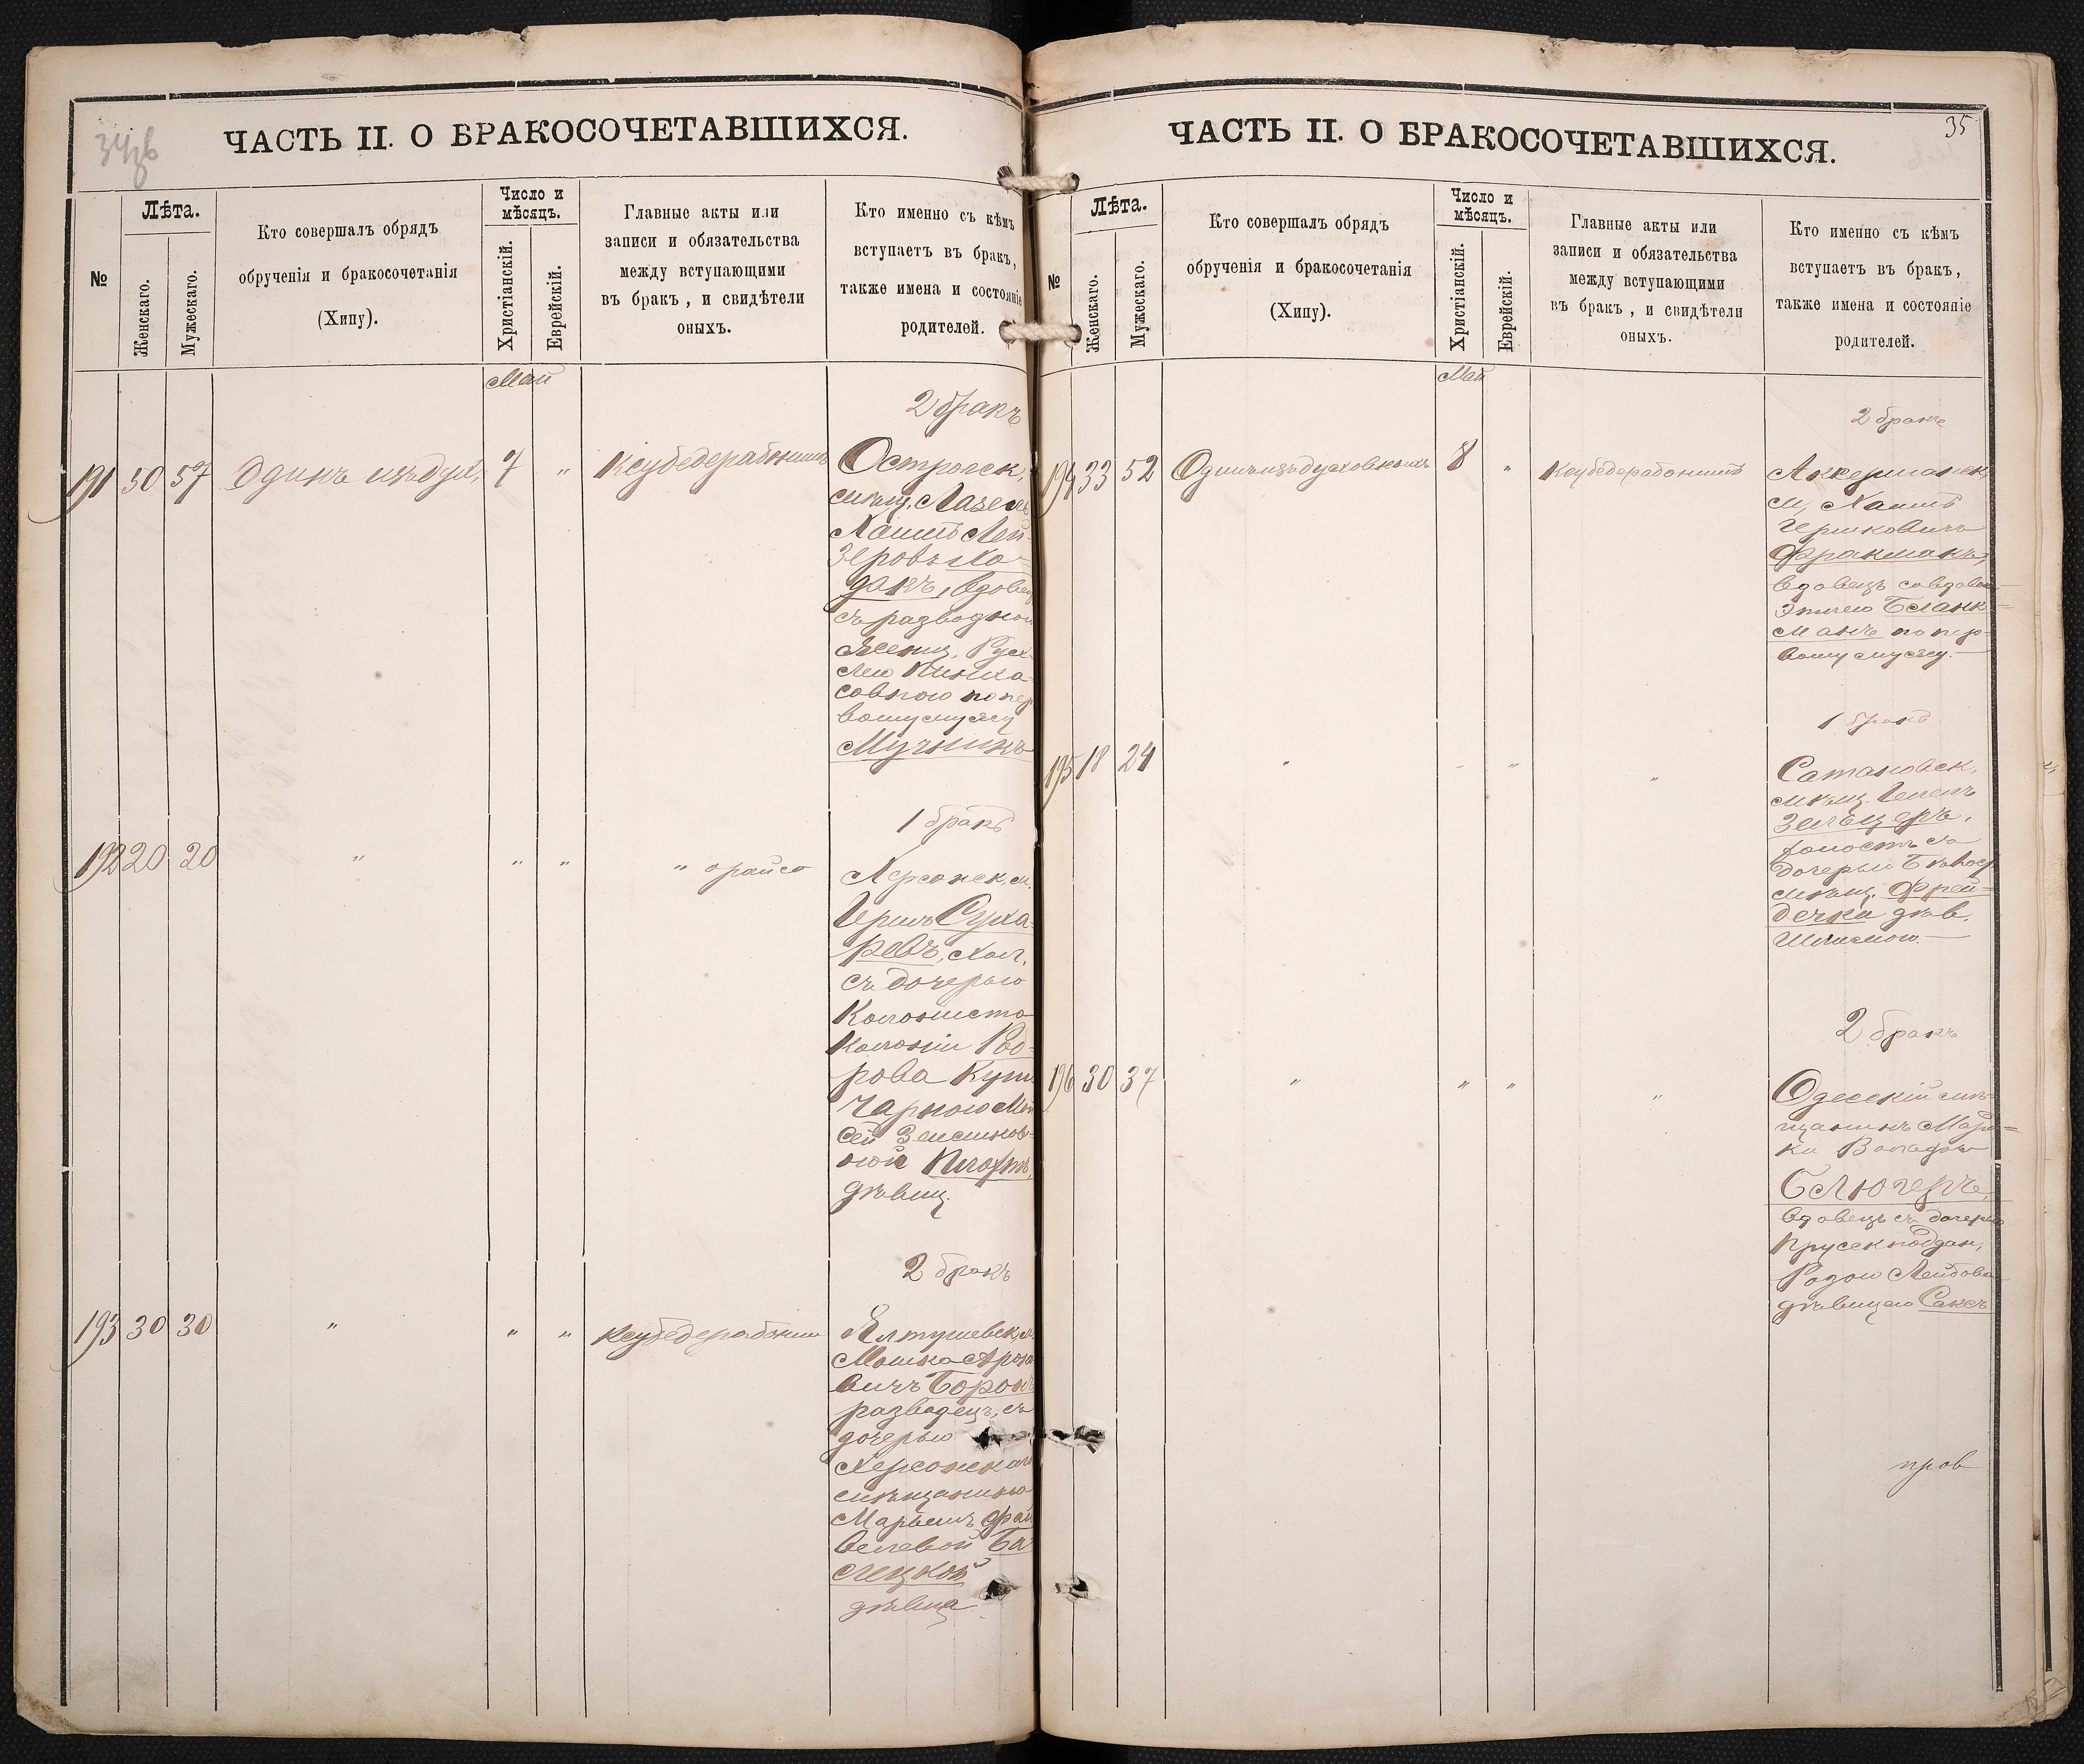 34зв
ЧАСТЬ II. О БРАКОСОЧЕТАВШИХСЯ.
№
Лѣта.
Женскаго.
Мужескаго.
Кто совершалъ обрядъ
обрученія и бракосочетанія
(Хипу).
Число и
мѣсяцъ.
Христіанскій.
Еврейскій.
Главные акты или
записи и обязательства
между вступающими
въ бракъ, и свидѣтели
оныхъ.
Кто именно съ кѣмъ
вступаетъ въ бракъ,
также имена и состояніе
родителей.
Май
2 бракъ
191 50 57 Одинъ изъ дух, 7 „ Ксубедерабонимъ
Острогск,
мѣщ. Лазель
Хаимъ Лей-
зеровъ Хо-
данъ, вдовец
съ разводною
женщ. Русх-
лею Пинха-
совною по пер
вому мужу
Мучникъ
1 бракъ
192 20 20 „ „ „ „ орайсо
Херсонск, м.
Гершъ Суха-
ревъ, хол.
съ дочерью
Колониста
Колоніи Боб-
рова Кутъ
Чарною Мой
сей Зельманов-
ной Плахтъ,
дѣвиц.
2 бракъ
193 30 30 „ „ „ Ксубедерабоним
Ялтушевск, м.
Мошко Арона
вичъ Борон
разводецъ, съ
дочерью
Херсонскаго
мѣщанина
Марьемъ Фай
велевой Ба
слецкой
дѣвица
35
ЧАСТЬ II. О БРАКОСОЧЕТАВШИХСЯ.
№
Лѣта.
Женскаго.
Мужескаго.
Кто совершалъ обрядъ
обрученія и бракосочетанія
(Хипу).
Число и
мѣсяцъ.
Христіанскій.
Еврейскій.
Главные акты или
записи и обязательства
между вступающими
въ бракъ, и свидѣтели
оныхъ.
Кто именно съ кѣмъ
вступаетъ въ бракъ,
также имена и состояніе
родителей.
Май
2 бракъ
194 33 52 Одинъ изъ духовныхъ 8 „ Ксубедерабонимъ
Аккерманск,
м, Хаимъ
Гершковичъ
Фракманъ,
вдовецъ со вдовою
Этлею Бланк=
манъ по пер-
вому мужу.
1 бракъ
195 18 24 „ „ „ „
Сатановск,
мѣщ. Шепель
Зельцеръ,
холостъ съ
дочерью Бѣлоц
мѣщ, Фрей=
дечки дѣв.
Шлисмою.
2 бракъ
196 30 37 „ „ „ „
Одесскій мѣ-
щанинъ Мард=
ки Вольфъ
Блюгеръ,
вдовецъ съ дочерью
Прусск поддан,
Розою Лейбова
дѣвицею Саксъ
пров